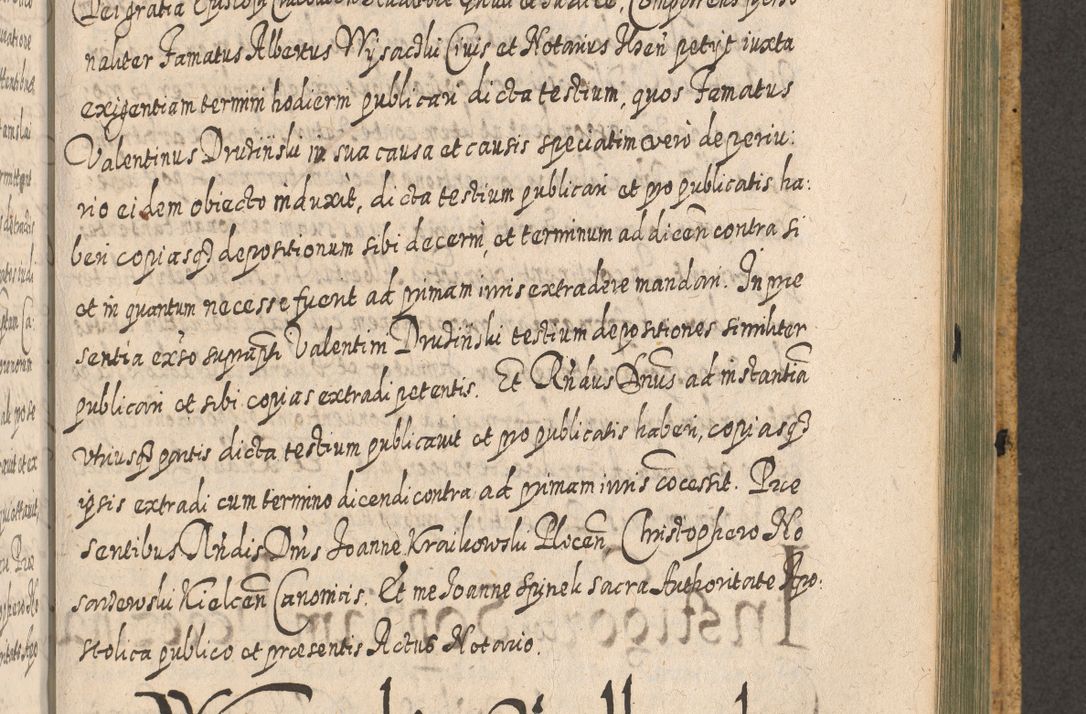 Dei gratia Episcopi Comparens perso
naliter Famatus Albertus Wysachi Civis et Notarius petyt iuxta
exigentiam termini hodierni publicari dicta testium, quos Famatus
Valentinus Drudinski in sua causa et causis speciatim vero de periu:
rio eidem obiecto induxit, dicta testium publicari et pro publicatis ha:
beri copiasqȝ depositionum sibi decerni, et terminum ad dicen contra si
et in quantum necesse fuerit ad primam iuris extradere mandari. In præ
sentia ex͂so suprap͂ti Valentini Drudinski testium depositiones similiter
publicari et sibi copias extradi petentis. Et R͂ndus Dn͂us ad instantia͂
utriusqȝ partis dicta testium publicauit et pro publicatis haberi, copiasqȝ
ipsis extradi cum termino dicendi contra ad primam iuris co͂cessit. Præ
sentibus R͂ndis Dn͂is Joanne Kraikowski Plocen͂ Christophero No
Kielcen͂ Canonicis. Et me Joanne sacra Authoritate Apo:
stolica publico et præsentis Actus Notario.